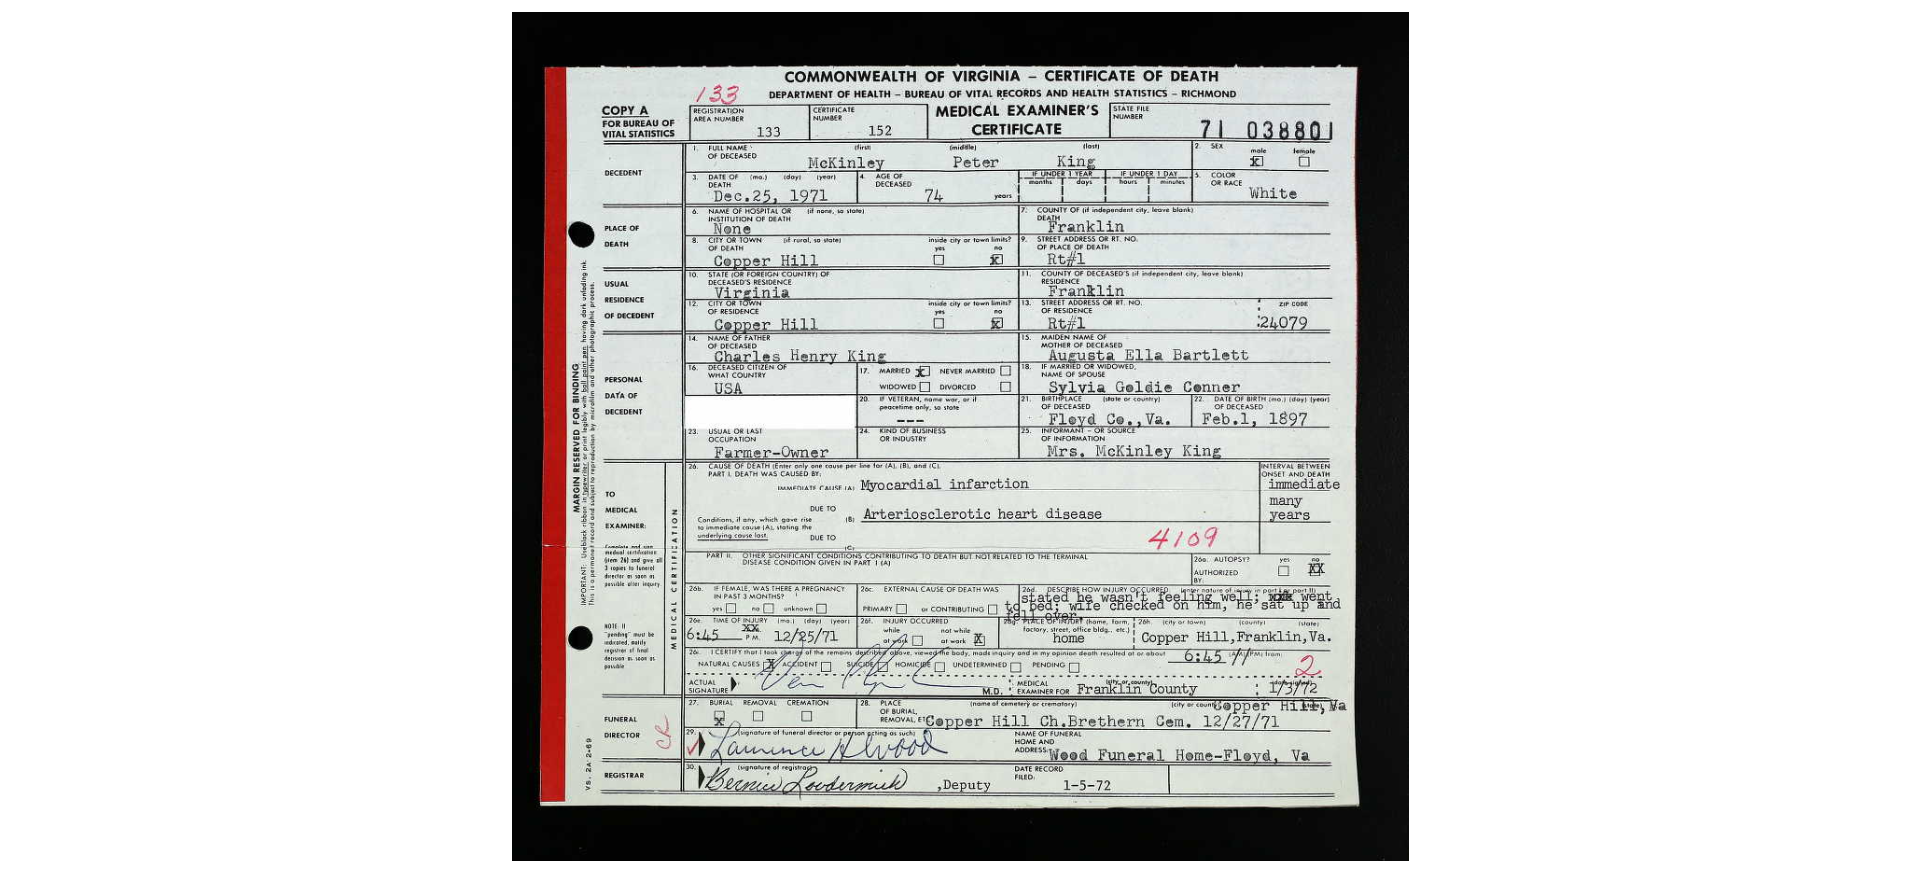 COMMONWEALTH OF VIRGINIA – CERTIFICATE OF DEATH
133
DEPARTMENT OF HEALTH – BUREAU OF VITAL RECORDS AND HEALTH STATISTICS – RICHMOND
COPY A
FOR BUREAU OF
VITAL STATISTICS
REGISTRATION
AREA NUMBER 133
CERTIFICATE
NUMBER 152
MEDICAL EXAMINER'S
CERTIFICATE
STATE FILE
NUMBER
71 038801
DECEDENT
1. FULL NAME (first) (middle) (last)
OF DECEASED
McKinley Peter King
2. SEX male female
x
3. DATE OF (mo.) (day) (year)
DEATH
Dec.25, 1971
4. AGE OF
DECEASED
74 years
IF UNDER 1 YEAR
months days
IF UNDER 1 DAY
hours minutes
5. COLOR
OR RACE
White
PLACE OF
DEATH
6. NAME OF HOSPITAL OR (if none, so state)
INSTITUTION OF DEATH
None
7. COUNTY OF (if independent city, leave blank)
DEATH
Franklin
8. CITY OR TOWN (if rural, so state)
OF DEATH
Copper Hill
inside city or town limits?
yes no
x
9. STREET ADDRESS OR RT. NO.
OF PLACE OF DEATH
Rt#1
USUAL
RESIDENCE
OF DECEDENT
10. STATE (OR FOREIGN COUNTRY) OF
DECEASED'S RESIDENCE
Virginia
11. COUNTY OF DECEASED'S (if independent city, leave blank)
RESIDENCE
Franklin
12. CITY OR TOWN
OF RESIDENCE
Copper Hill
inside city or town limits?
yes no
x
13. STREET ADDRESS OR RT. NO.
OF RESIDENCE
Rt#1
ZIP CODE
24079
PERSONAL
DATA OF
DECEDENT
14. NAME OF FATHER
OF DECEASED
Charles Henry King
15. MAIDEN NAME OF
MOTHER OF DECEASED
Augusta Ella Bartlett
16. DECEASED CITIZEN OF
WHAT COUNTRY
USA
17. MARRIED x NEVER MARRIED
WIDOWED DIVORCED
18. IF MARRIED OR WIDOWED,
NAME OF SPOUSE
Sylvia Goldie Conner
20. IF VETERAN, name war, or if
peacetime only, so state
---
21. BIRTHPLACE (state or country)
OF DECEASED
Floyd Co.,Va.
22. DATE OF BIRTH (mo.) (day) (year)
OF DECEASED
Feb.1, 1897
23. USUAL OR LAST
OCCUPATION
Farmer-Owner
24. KIND OF BUSINESS
OR INDUSTRY
25. INFORMANT – OR SOURCE
OF INFORMATION
Mrs. McKinley King
MARGIN RESERVED FOR BINDING
TO
MEDICAL
EXAMINER:
Complete and sign
medical certification
(item 26) and give all
3 copies to funeral
director as soon as
possible after inquiry.
NOTE: If
"pending" must be
indicated, notify
registrar of final
decision as soon as
possible
MEDICAL CERTIFICATION
26. CAUSE OF DEATH (Enter only one cause per line for (A), (B), and (C).
PART I. DEATH WAS CAUSED BY:
IMMEDIATE CAUSE (A) Myocardial infarction
INTERVAL BETWEEN
ONSET AND DEATH
immediate
DUE TO
(B) Arteriosclerotic heart disease
many
years
Conditions, if any, which gave rise
to immediate cause (A), stating the
underlying cause last.
DUE TO
(C)
4109
PART II. OTHER SIGNIFICANT CONDITIONS CONTRIBUTING TO DEATH BUT NOT RELATED TO THE TERMINAL
DISEASE CONDITION GIVEN IN PART I (A)
26a. AUTOPSY? yes no
AUTHORIZED
BY:
XX
26b. IF FEMALE, WAS THERE A PREGNANCY
IN PAST 3 MONTHS?
yes no unknown
26c. EXTERNAL CAUSE OF DEATH WAS
PRIMARY or CONTRIBUTING
26d. DESCRIBE HOW INJURY OCCURRED (enter nature of injury in part I or part II)
stated he wasn't feeling well; xxx went
to bed; wife checked on him, he sat up and
fell over.
26e. TIME OF INJURY (mo.) (day) (year)
6:45 XX P.M. 12/25/71
26f. INJURY OCCURRED
while
at work
not while
at work X
26g. PLACE OF INJURY (home, farm,
factory, street, office bldg., etc.)
home
26h. (city or town) (county) (state)
Copper Hill,Franklin,Va.
26i. I CERTIFY that I took charge of the remains described above, viewed the body, made inquiry and in my opinion death resulted at or about 6:45 (AM)(PM) from:
NATURAL CAUSES X ACCIDENT SUICIDE HOMICIDE UNDETERMINED PENDING
2
ACTUAL
SIGNATURE
M.D.
MEDICAL (city or county)
EXAMINER FOR Franklin County
(date signed)
1/3/72
FUNERAL
DIRECTOR
27. BURIAL REMOVAL CREMATION
x
28. PLACE
OF BURIAL,
REMOVAL, ETC.
(name of cemetery or crematory) (city or county)
Copper Hill,Va
Copper Hill Ch.Brethern Cem. 12/27/71
29. (signature of funeral director or person acting as such)
NAME OF FUNERAL
HOME AND
ADDRESS: Wood Funeral Home-Floyd, Va
REGISTRAR
30. (signature of registrar)
Bernice Loudermilk ,Deputy
DATE RECORD
FILED:
1-5-72
VS. 2A 2-69